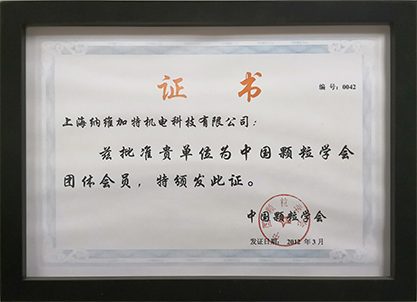 证书
编号：0042
上海纳维加特机电科技有限公司：
兹批准贵单位为中国颗粒学会
团体会员，特颁发此证。
中国颗粒学会
发证日期：2012年3月